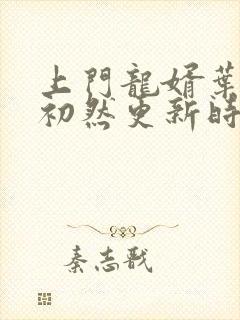 上門龍婿葉
初然更新時
秦志戬